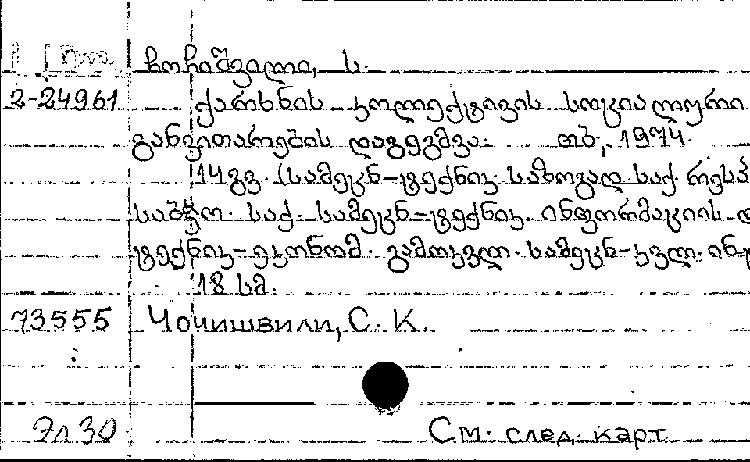 ჩოჩიშვილი, ს.
2-24961 ქარხნის კოლექტივის სოციალური
განვითარების დაგეგმვა. თბ., 1974.
14 გვ. (სამეცნ-ტექნიკ. საზოგად. საქ. რესპ
საბჭო. საქ. სამეცნ-ტექნიკ. ინფორმაციის
ტექნიკ-ეკონომ. გამოკვლ. სამეცნ-კვლ. ინ
18 სმ.
73555 Чочишвили, С. К.
Эл 30 См. след. карт.